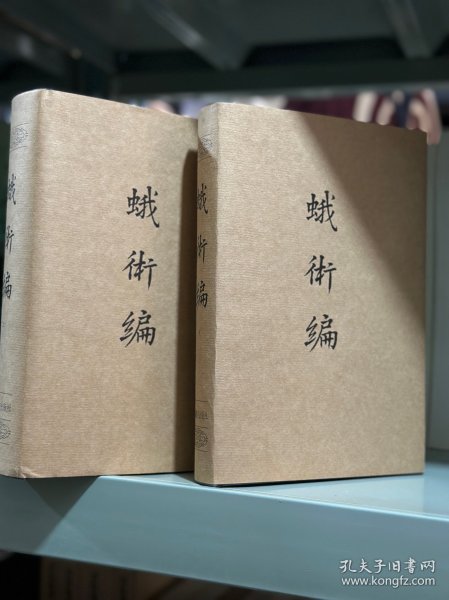 蛾術編
蛾術編
蛾術編
蛾術編
孔夫子旧书网
www.kongfz.com